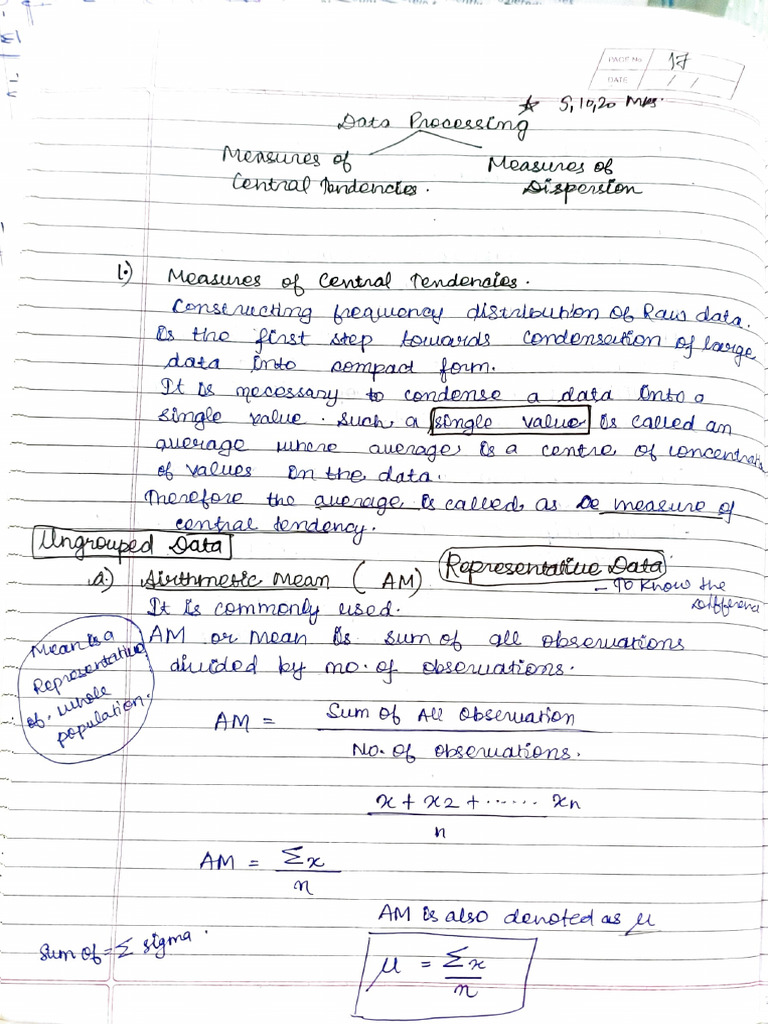 PAGE No. 17
DATE / /
☆ 5,10,20 Mks.
Data Processing
Measures of Central Tendencies.
Measures of Dispersion
1.) Measures of Central Tendencies.
Constructing frequency distribution of Raw data.
Is the first step towards condensation of large
data into compact form.
It is necessary to condense a data into a
single value. Such a single value is called an
average where average is a centre of concentrati
of values in the data.
Therefore the average is called as measure of
central tendency.
Ungrouped Data
Representative Data
a.) Airthmetic Mean (AM)
– To know the
differenc
It is commonly used.
AM or Mean is sum of all observations
divided by no. of observations.
Mean is a
Representative
of whole
population.
AM = Sum of All observation
No. of observations.
x + x2 + ...... xn
n
AM = Σx
n
AM is also denoted as μ
Sum of = Σ sigma.
μ = Σx
n